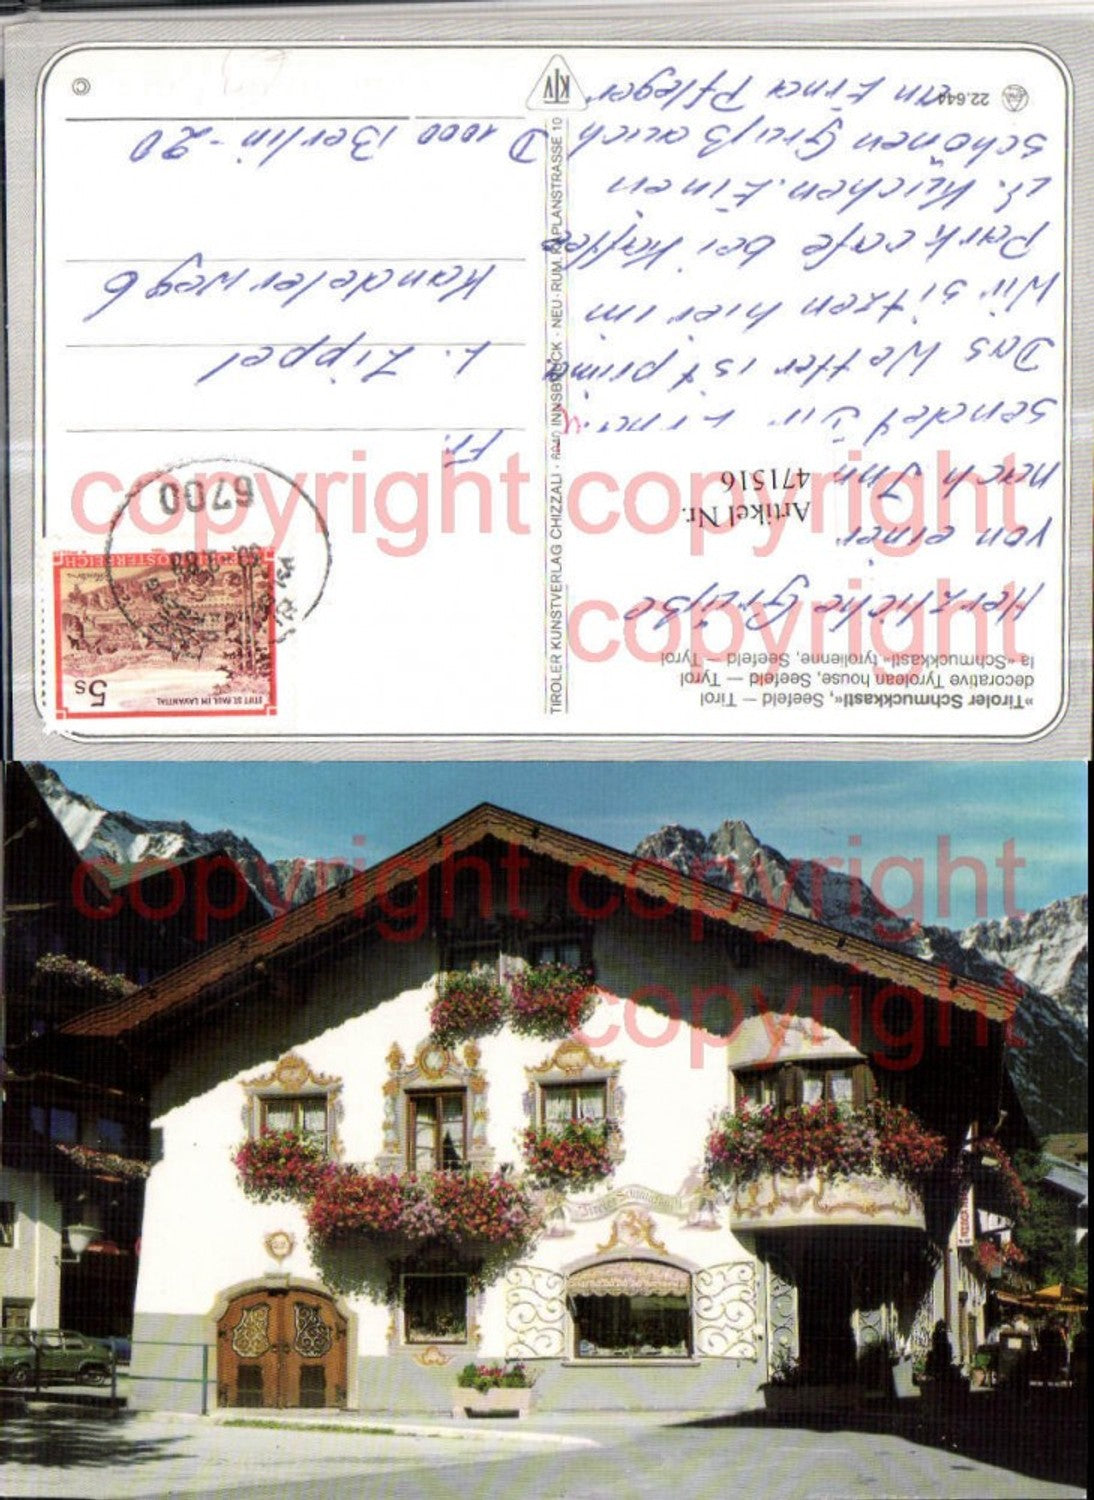 »Tiroler Schmuckkastl«, Seefeld — Tirol
decorative Tyrolean house, Seefeld — Tyrol
la »Schmuckkastl« tyrolienne, Seefeld — Tyrol
Herzliche Grüße
von einer
nach Inn
sendet Dir Erna.
Das Wetter ist prima
Wir sitzen hier im
Park cafe bei Kaffee
u. Kuchen. Einen
schönen Gruß auch
an Erna Pfleger
22.644
Artikel Nr.
471516
TIROLER KUNSTVERLAG CHIZZALI · 6040 INNSBRUCK · NEU-RUM, KAPLANSTRASSE 10
KTV
STIFT ST. PAUL IM LAVANTTAL
5 S
REPUBLIK ÖSTERREICH
6700
Fr.
L. Zippel
Kandelerweg 6
D 1000 Berlin-20
©
copyright copyright
copyright
copyright copyright
copyright
Tiroler Schmuckkastl